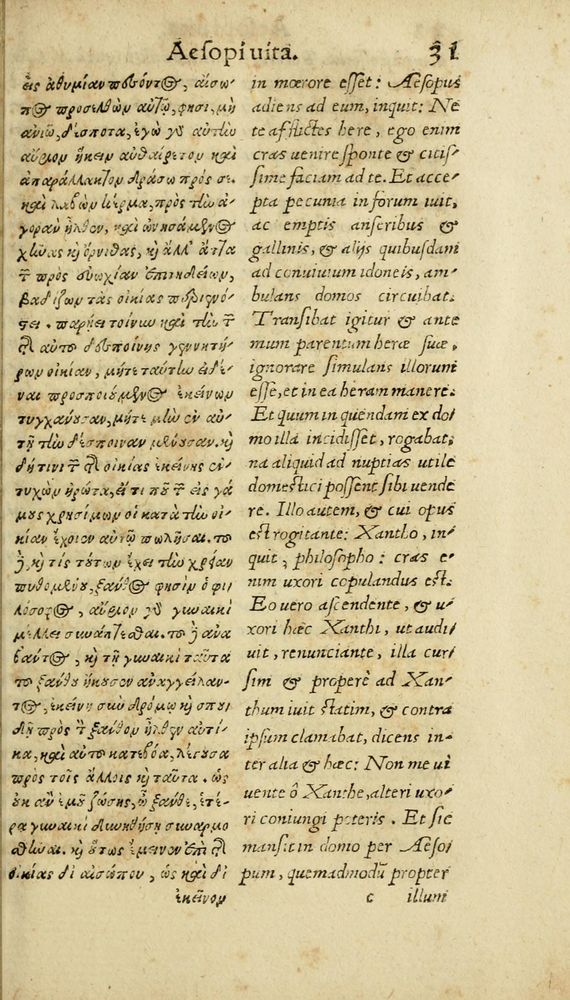 Aesopi vita. 31
εις αθυμίαν πεσόντος, αίσω-
πος προσελθὼν αυτῷ, φησι, μὴ
ανιῶ, δέσποτα, ἐγὼ γὰρ αυτὴν
αύριον ήκειν αυθαίρετον καὶ
απαράλλακτον δράσω πρός σε.
καὶ λαβὼν κέρμα, πρὸς τὴν α-
γορὰν ἦλθον, καὶ ὠνησάμενος
χῆνας κὴ όρνιθας, κὴ άλλ' άττα
τ πρὸς ευωχίαν επιτηδείων,
βαδίζων τὰς οικίας περιενό-
στει. παρῄει τοίνυν καὶ τὴν τ
αυτο δεσποίνης γεννητή-
ρων οικίαν, μήτε ταύτην ειδέ-
ναι προσποιούμενος εκείνων
τυγχάνουσαν, μήτε μὴν εν αυ-
τῇ τὴν δέσποιναν μένουσαν. κὴ
δή τινι τ οικίας εκείνης εν-
τυχὼν ηρώτα, εί τι που τ εις γά
μους χρησίμων οι κατὰ τὴν οι-
κίαν έχοιεν αυτῷ πωλῆσαι. το
κὴ τίς τούτων έχει τὴν χρείαν
πυθομένου, ξανθος φησὶν ο φι
λόσοφος, αύριον γὰρ γυναικὶ
μέλλει συνάπτεσθαι. το ανα
βάντος, κὴ τῇ γυναικὶ ταῦτα
το ξάνθου ήκουσεν αναγγείλαν-
τος, εκείνη σὺν δρόμῳ κὴ σπου
δῇ πρὸς τ ξάνθον ἦλθεν αυτί-
κα, καὶ αυτο κατεβόα, λέγουσα
πρὸς τοῖς άλλοις κὴ ταῦτα. ὡς
ουκ αν εμοῦ ζώσης, ὦ ξανθε, ετέ-
ρᾳ γυναικὶ δυνηθήσῃ συναρμο
σθῆναι. κὴ ούτως έμεινεν επὶ
οικίας δι αισώπου, ὡς καὶ δι
εκεῖνον
in mœrore esset: Aesopus
adiens ad eum, inquit: Ne
te afflictes here, ego enim
cras uenire sponte & citis/
sime faciam ad te. Et acce/
pta pecunia in forum iuit,
ac emptis anseribus &
gallinis, & alijs quibusdam
ad conuiuium idoneis, am/
bulans domos circuibat.
Transibat igitur & ante
mum parentum heræ suæ,
ignorare simulans illorum
esse, et in ea heram manere.
Et quum in quendam ex do/
mo illa incidisset, rogabat,
na aliquid ad nuptias utile
domestici possent sibi uende
re. Illo autem, & cui opus
est rogitante: Xantho, in/
quit, philosopho: cras e/
nim uxori copulandus est.
Eo uero ascendente, & u/
xori hæc Xanthi, ut audi/
uit, renunciante, illa cur/
sim & properè ad Xan/
thum iuit statim, & contra
ipsum clamabat, dicens in/
ter alia & hæc: Non me ui
uente ô Xanthe, alteri uxo/
ri coniungi poteris. Et sic
mansit in domo per Aeso/
pum, quemadmodũ propter
c illum